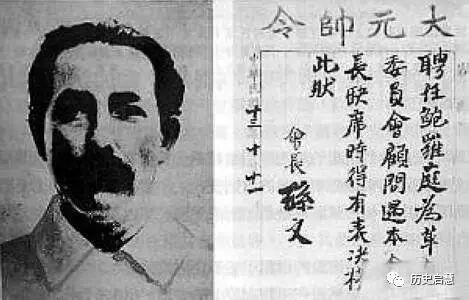 大元帥令
聘任鮑羅庭為革
委員會顧問遇本會
長缺席時得有表決權
此狀
會長 孫文
中華民國 十三 十 十一
历史启慧